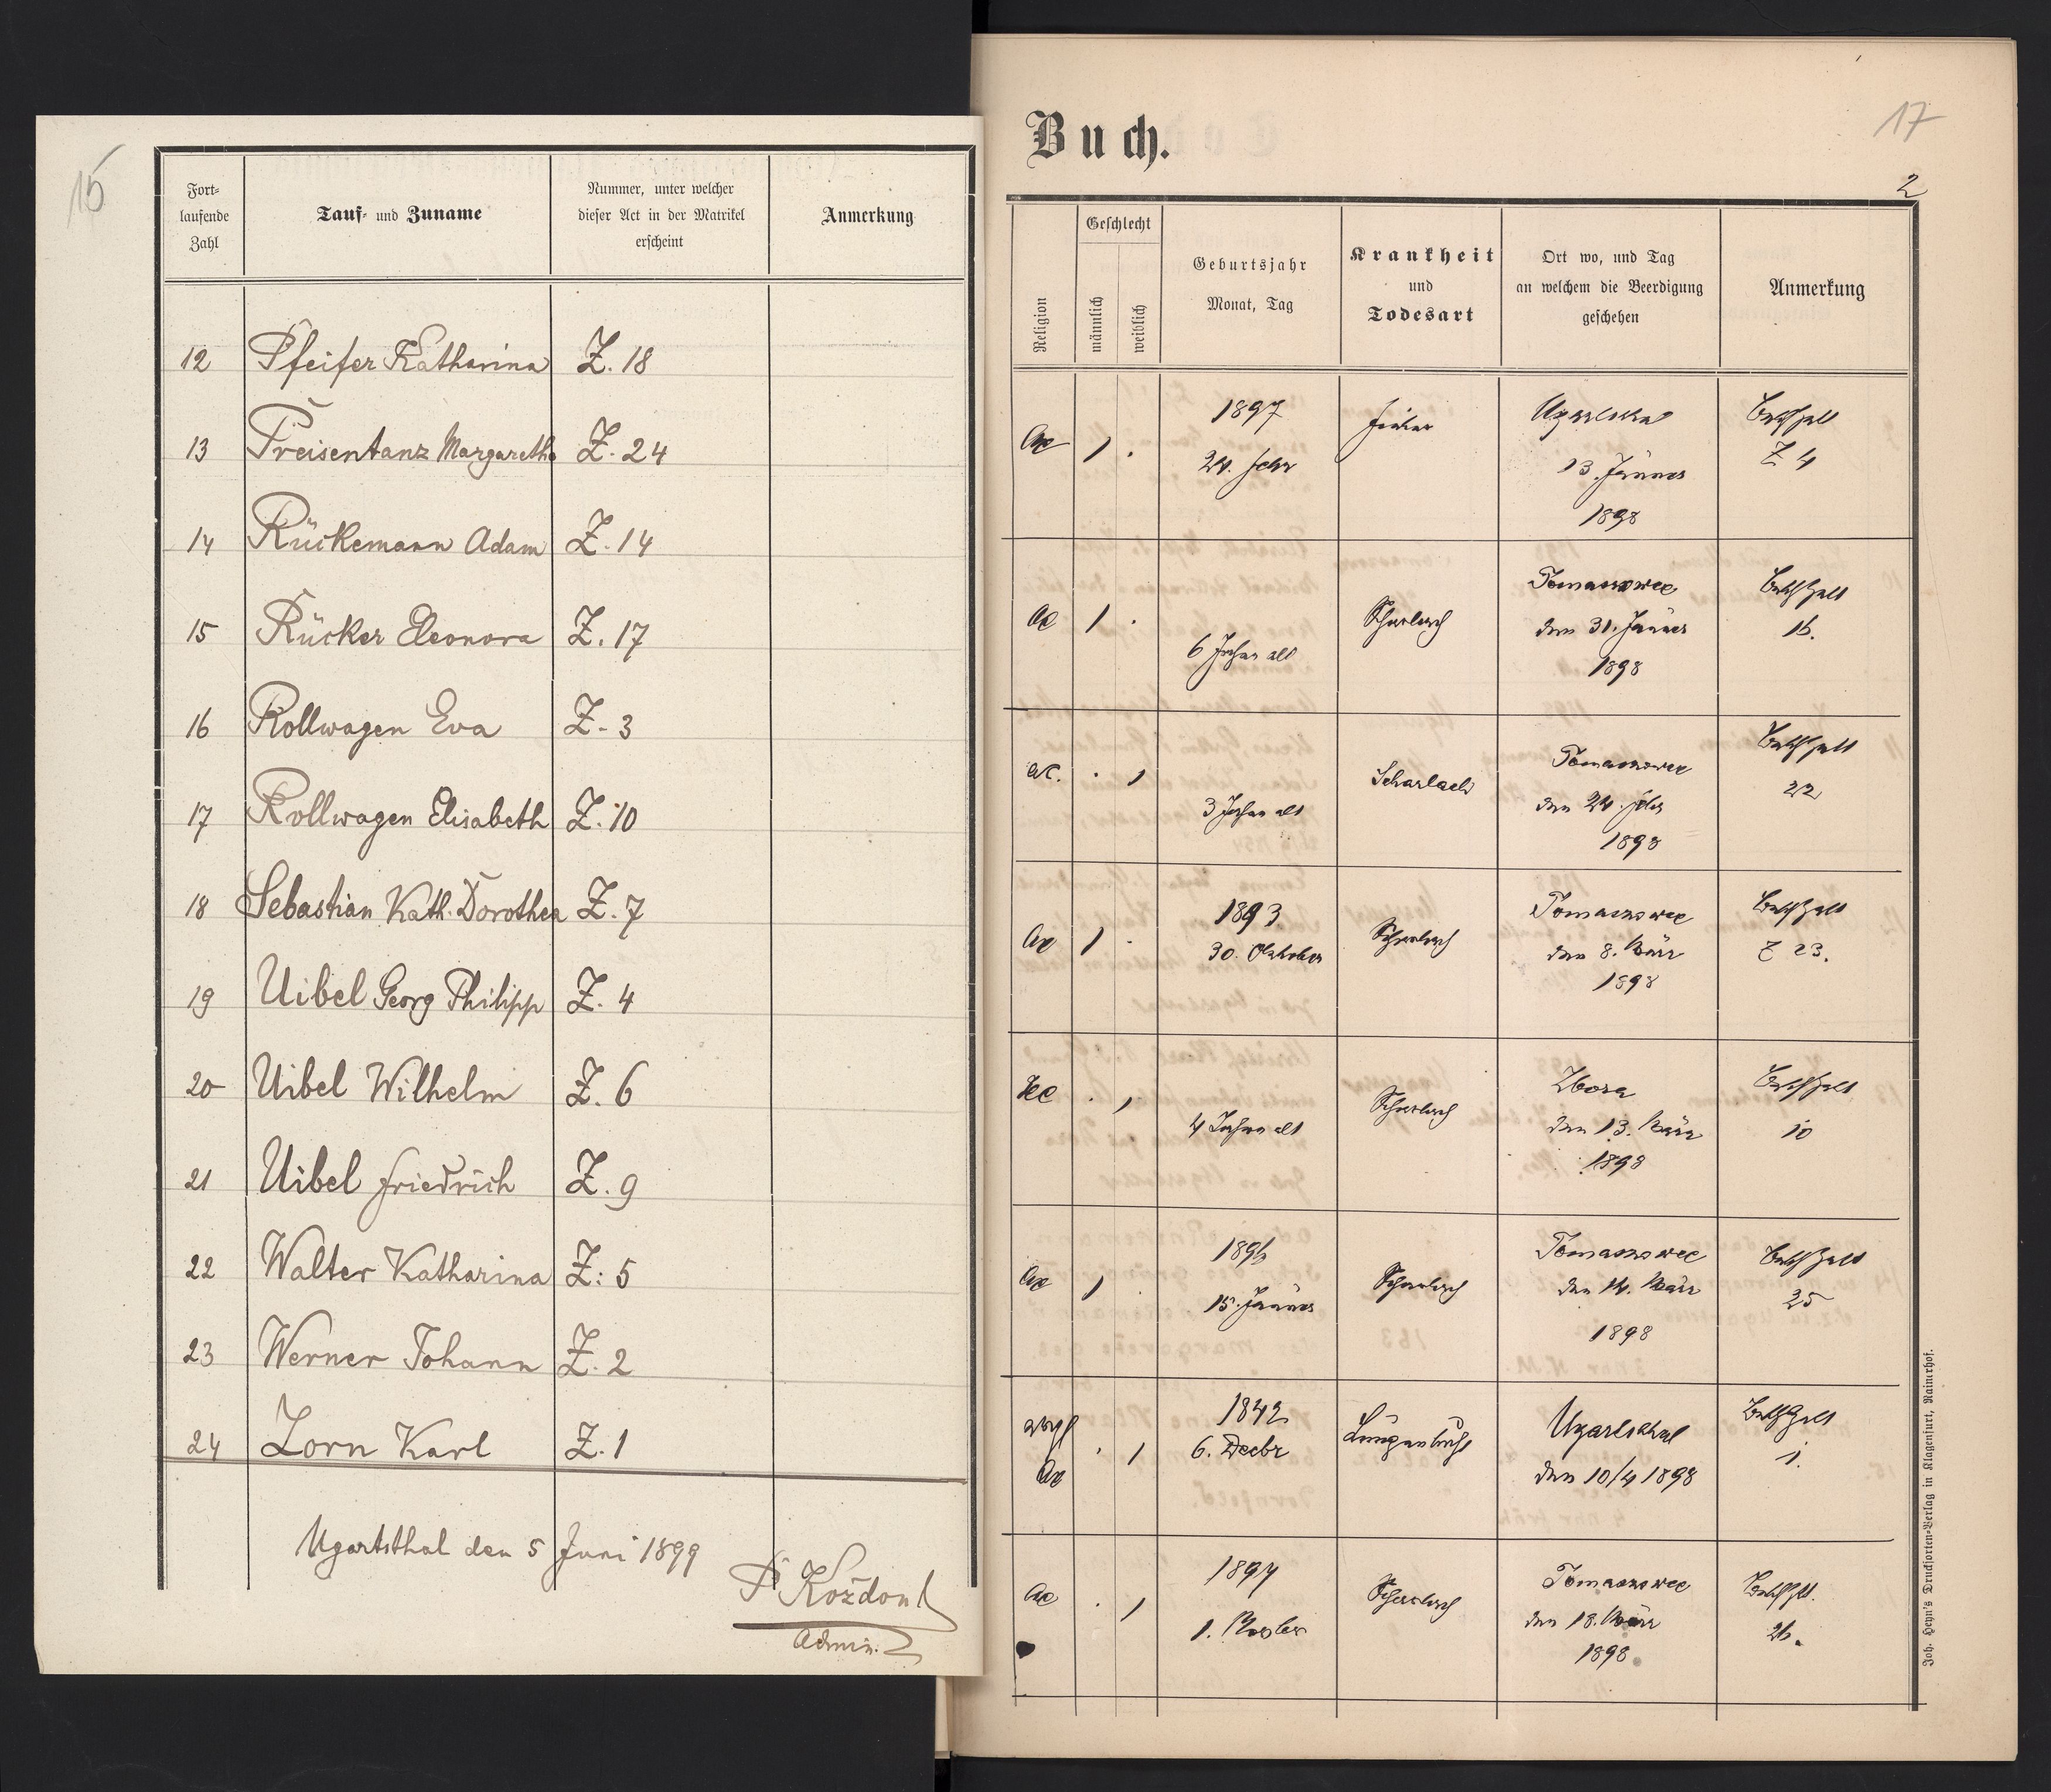 15
Fort-
laufende
Zahl
Tauf- und Zuname
Nummer, unter welcher
dieser Act in der Matrikel
erscheint
Anmerkung
12 Pfeifer Katharina Z. 18
13 Preisentanz Margaretha Z. 24
14 Rückemann Adam Z. 14
15 Rücker Eleonora Z. 17
16 Rollwagen Eva Z. 3
17 Rollwagen Elisabeth Z. 10
18 Sebastian Kath. Dorothea Z. 7
19 Uibel Georg Philipp Z. 4
20 Uibel Wilhelm Z. 6
21 Uibel Friedrich Z. 9
22 Walter Katharina Z: 5
23 Werner Johann Z. 2
24 Zorn Karl Z. 1
Ugartsthal den 5 Juni 1899
P Koždoň
Admin.
17
Buch.
2
Religion
Geschlecht
männlich
weiblich
Geburtsjahr
Monat, Tag
Krankheit
und
Todesart
Ort wo, und Tag
an welchem die Beerdigung
geschehen
Anmerkung
1897
24. Febr
Fieber
Ugartsthal
13. Jänner
1898
Z 4
6 Jahre alt
Scharlach
Tomaszowce
den 31. Jänner
1898
16.
AC.
3 Jahre alt
Scharlach
Tomaszowce
den 24. Feber
1898
22
1893
30. Oktober
Scharlach
Tomaszowce
den 8. März
1898
Z 23.
HC
4 Jahre alt
Scharlach
Zbora
den 13. März
1898
10
1896
15. Jänner
Scharlach
Tomaszowce
den 14. März
1898
25
1842
6. Decbr
Ugartsthal
den 10/4 1898
1.
1894
1. Novber
Scharlach
Tomaszowce
den 18. März
1898
26.
Joh. Heyn's Drucksorten-Verlag in Klagenfurt, Rainerhof.